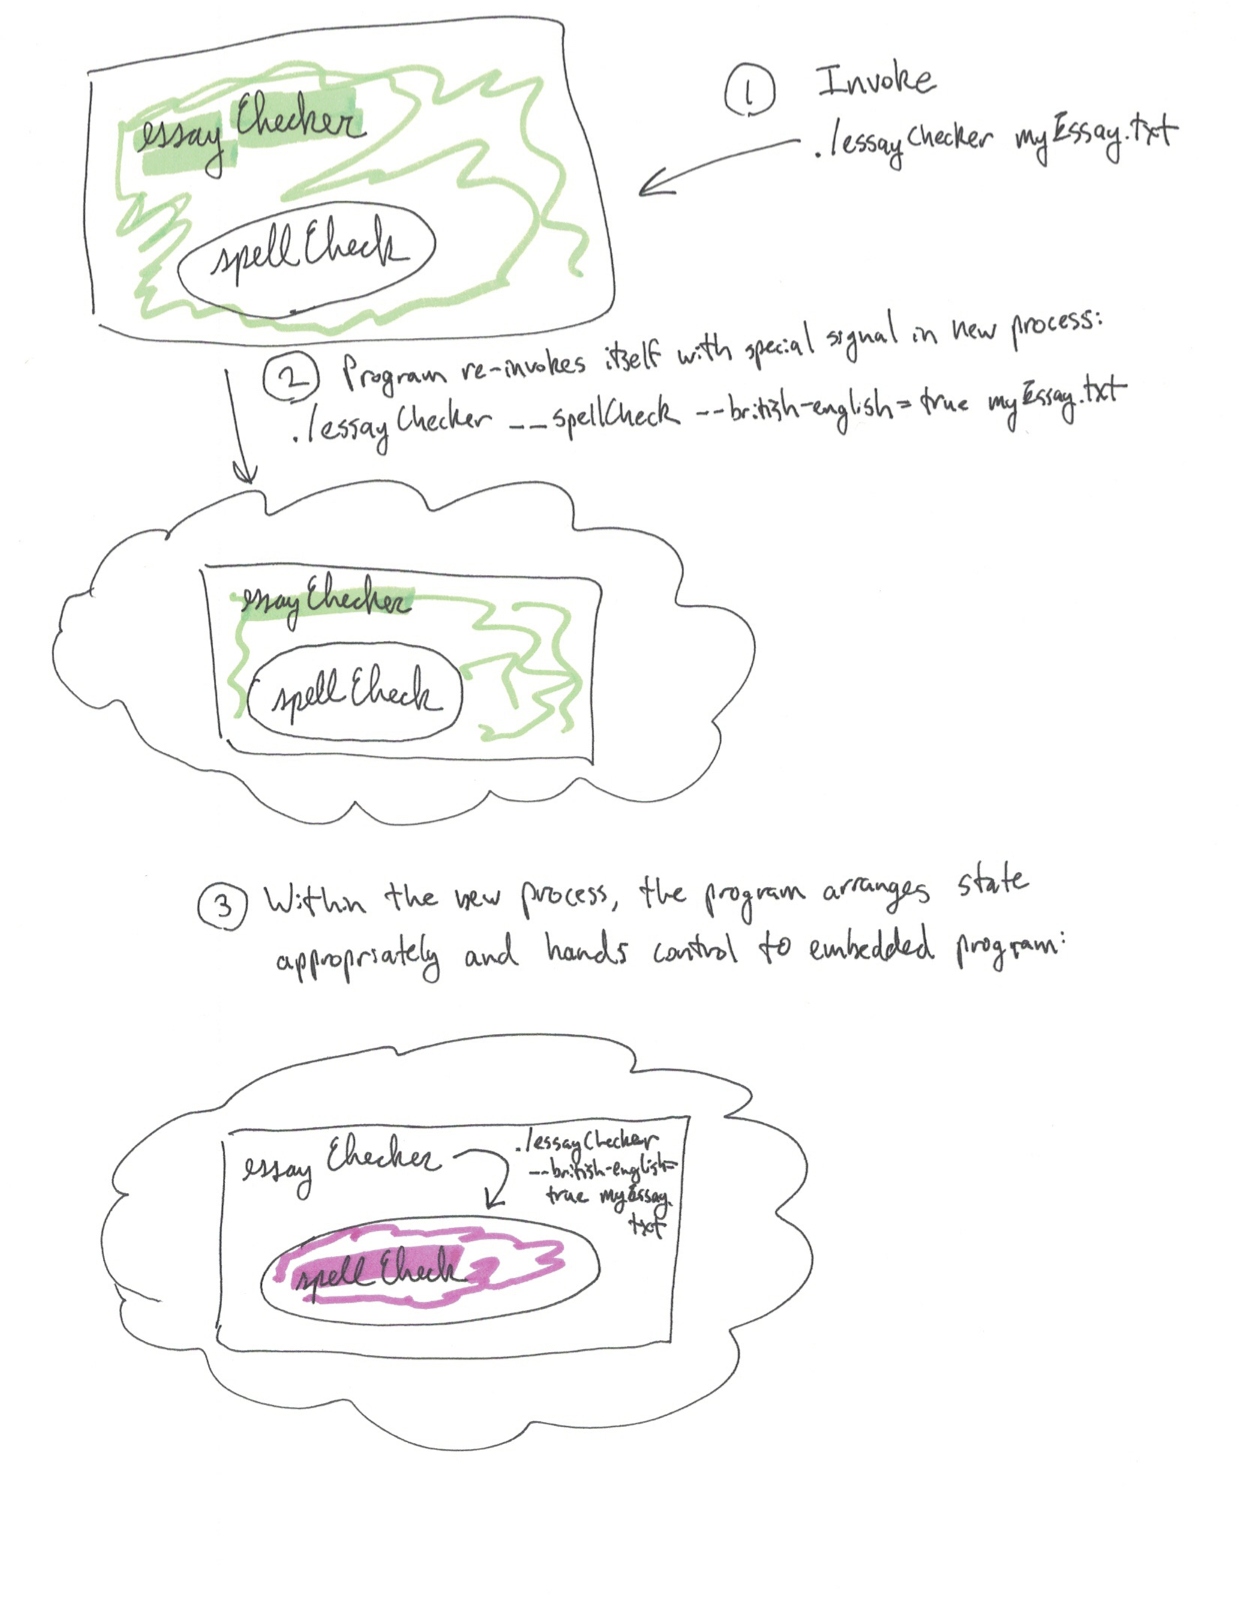 essay Checker
spell Check
1 Invoke
./essayChecker myEssay.txt
2 Program re-invokes itself with special signal in new process:
./essayChecker __spellCheck --british-english=true myEssay.txt
essay Checker
spell Check
3 Within the new process, the program arranges state
appropriately and hands control to embedded program:
essay Checker
./essayChecker
--british-english=
true myEssay.
txt
spell Check